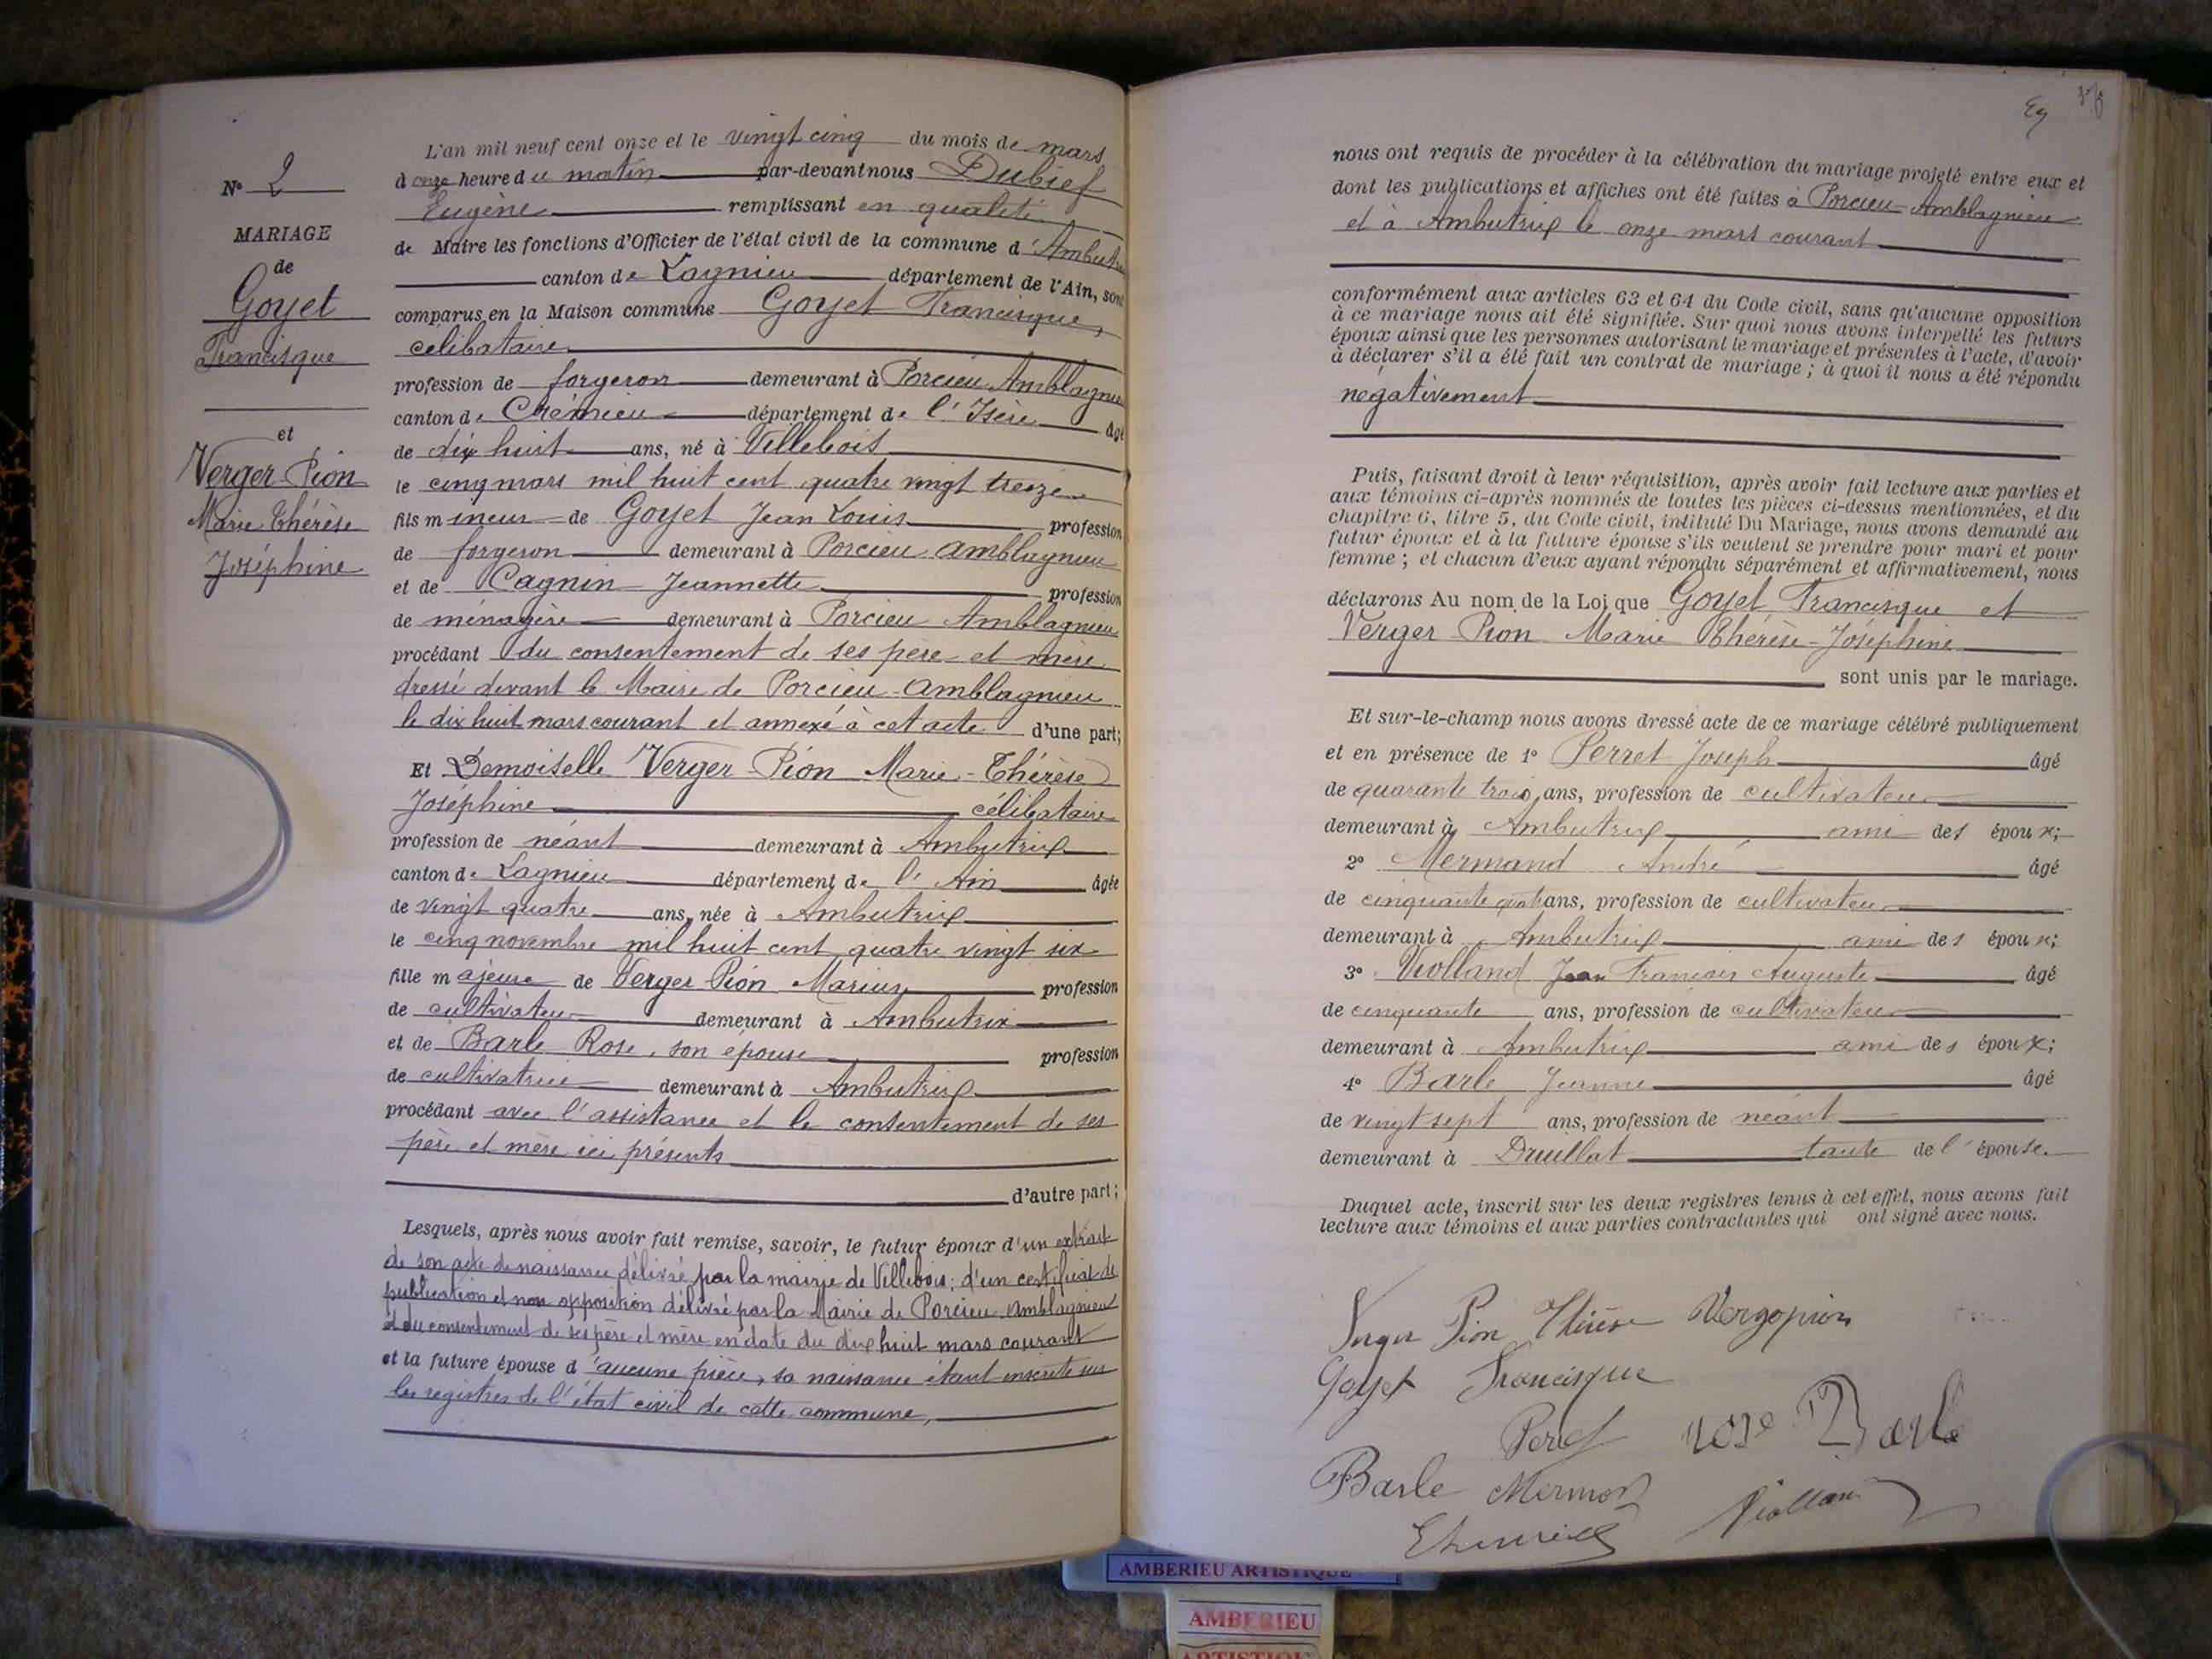 N° 2
MARIAGE
de
Goyet
Francisque
et
Verger-Pion
Marie Thérèse
Joséphine
L'an mil neuf cent onze et le vingt cinq du mois de mars
à onze heure du matin par-devant nous Dubief
Eugène remplissant en qualité
de Maire les fonctions d'Officier de l'état civil de la commune d'Ambutrix
canton de Lagnieu département de l'Ain, sont
comparus en la Maison commune Goyet Francisque,
célibataire
profession de forgeron demeurant à Porcieu Amblagnieu
canton de Crémieu département de l'Isère âgé
de dix huit ans, né à Villebois
le cinq mars mil huit cent quatre vingt treize
fils mineur de Goyet Jean Louis profession
de forgeron demeurant à Porcieu Amblagnieu
et de Cagnin Jeannette profession
de ménagère demeurant à Porcieu Amblagnieu
procédant du consentement de ses père et mère
dressé devant le Maire de Porcieu-Amblagnieu
le dix huit mars courant et annexé à cet acte d'une part;
Et Demoiselle Verger-Pion Marie-Thérèse
Joséphine célibataire
profession de néant demeurant à Ambutrix
canton de Lagnieu département de l'Ain âgée
de vingt quatre ans, née à Ambutrix
le cinq novembre mil huit cent quatre vingt six
fille majeure de Verger-Pion Marius profession
de cultivateur demeurant à Ambutrix
et de Barle Rose, son épouse profession
de cultivatrice demeurant à Ambutrix
procédant avec l'assistance et le consentement de ses
père et mère ici présents
d'autre part;
Lesquels, après nous avoir fait remise, savoir, le futur époux d'un extrait
de son acte de naissance délivré par la mairie de Villebois; d'un certificat de
publication et non opposition délivré par la Mairie de Porcieu Amblagnieu
et du consentement de ses père et mère en date du dix huit mars courant
et la future épouse d'aucune pièce, sa naissance étant inscrite sur
les registres de l'état civil de cette commune,
nous ont requis de procéder à la célébration du mariage projeté entre eux et
dont les publications et affiches ont été faites à Porcieu-Amblagnieu
et à Ambutrix le onze mars courant
conformément aux articles 63 et 64 du Code civil, sans qu'aucune opposition
à ce mariage nous ait été signifiée. Sur quoi nous avons interpellé les futurs
époux ainsi que les personnes autorisant le mariage et présentes à l'acte, d'avoir
à déclarer s'il a été fait un contrat de mariage; à quoi il nous a été répondu
négativement
Puis, faisant droit à leur réquisition, après avoir fait lecture aux parties et
aux témoins ci-après nommés de toutes les pièces ci-dessus mentionnées, et du
chapitre 6, titre 5, du Code civil, intitulé Du Mariage, nous avons demandé au
futur époux et à la future épouse s'ils veulent se prendre pour mari et pour
femme; et chacun d'eux ayant répondu séparément et affirmativement, nous
déclarons Au nom de la Loi que Goyet Francisque et
Verger Pion Marie Thérèse-Joséphine
sont unis par le mariage.
Et sur-le-champ nous avons dressé acte de ce mariage célébré publiquement
et en présence de 1° Perret Joseph âgé
de quarante trois ans, profession de cultivateur
demeurant à Ambutrix ami des époux;
2° Mermand André âgé
de cinquante quatre ans, profession de cultivateur
demeurant à Ambutrix ami des époux;
3° Violland Jean François Auguste âgé
de cinquante ans, profession de cultivateur
demeurant à Ambutrix ami des époux;
4° Barle Jeanne âgé
de vingt sept ans, profession de néant
demeurant à Druillat tante de l'épouse.
Duquel acte, inscrit sur les deux registres tenus à cet effet, nous avons fait
lecture aux témoins et aux parties contractantes qui ont signé avec nous.
Verger Pion Thérèse Vergopion
Goyet Francisque
rose Barle
Barle Mermon
Violland
AMBERIEU ARTISTIQUE
AMBERIEU